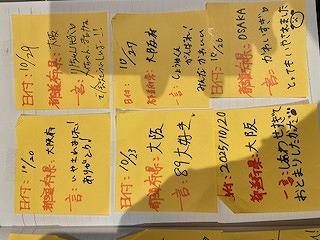 日付：10/20
都道府県：大阪府
一言：いやされました！
ありがとう！
日付：10/24
都道府県：大阪
一言：
日付：10/23
都道府県：大阪
一言：89大好き。
日付：10/27
都道府県：大阪府
一言：しょうゆくん
がんばれ！
みんなかわいい
日付：2025/10/20
都道府県：大阪
一言：しあわせすぎて
おとまりしたかった
日付：10/26
都道府県：OSAKA
一言：かわいすぎ♡
とってもいやされました